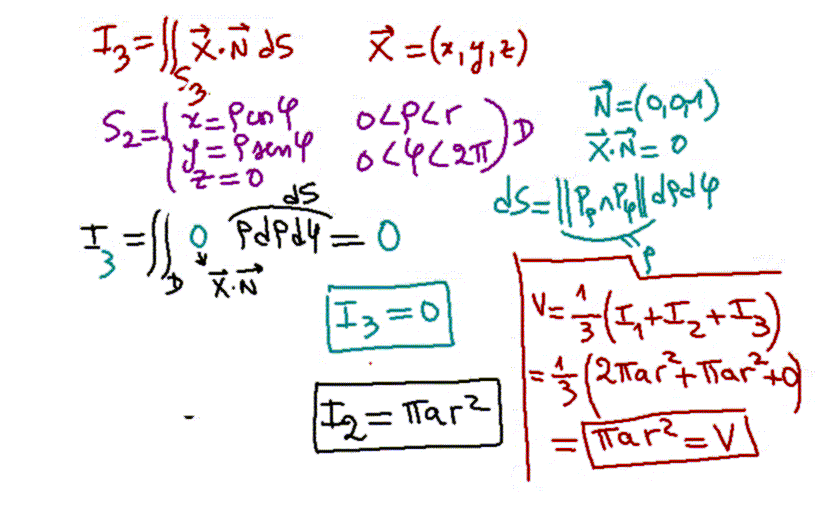 I₃ = ∬_S₃ X⃗·N⃗ dS    X⃗ = (x, y, z)
S₂ = { x = ρ cos φ    0 < ρ < r
y = ρ sen φ    0 < φ < 2π ) D
z = 0
N⃗ = (0,0,-1)
X⃗·N⃗ = 0
dS = ||P_ρ ∧ P_φ|| dρdφ
ρ
I₃ = ∬_D 0 ρdρdφ = 0
dS
X⃗·N⃗
I₃ = 0
I₂ = πar²
V = 1/3 (I₁ + I₂ + I₃)
= 1/3 (2πar² + πar² + 0)
= πar² = V